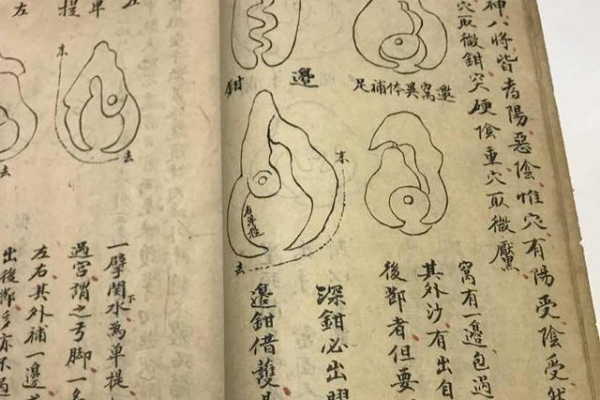 神八將皆為陽惡陰惟穴有陽受陰受
穴取微鉗突硬陰重穴取微靨
足補体異窩邊
窩有一邊包過
其外沙有出自
後鄰者但要
邊
鉗
來
去
深鉗必出
邊鉗借護
左
單
提
來
去
去
一臂関下水為單提
過宮謂之弓脚一名
左右其外補一邊
出後鄰多亦不過